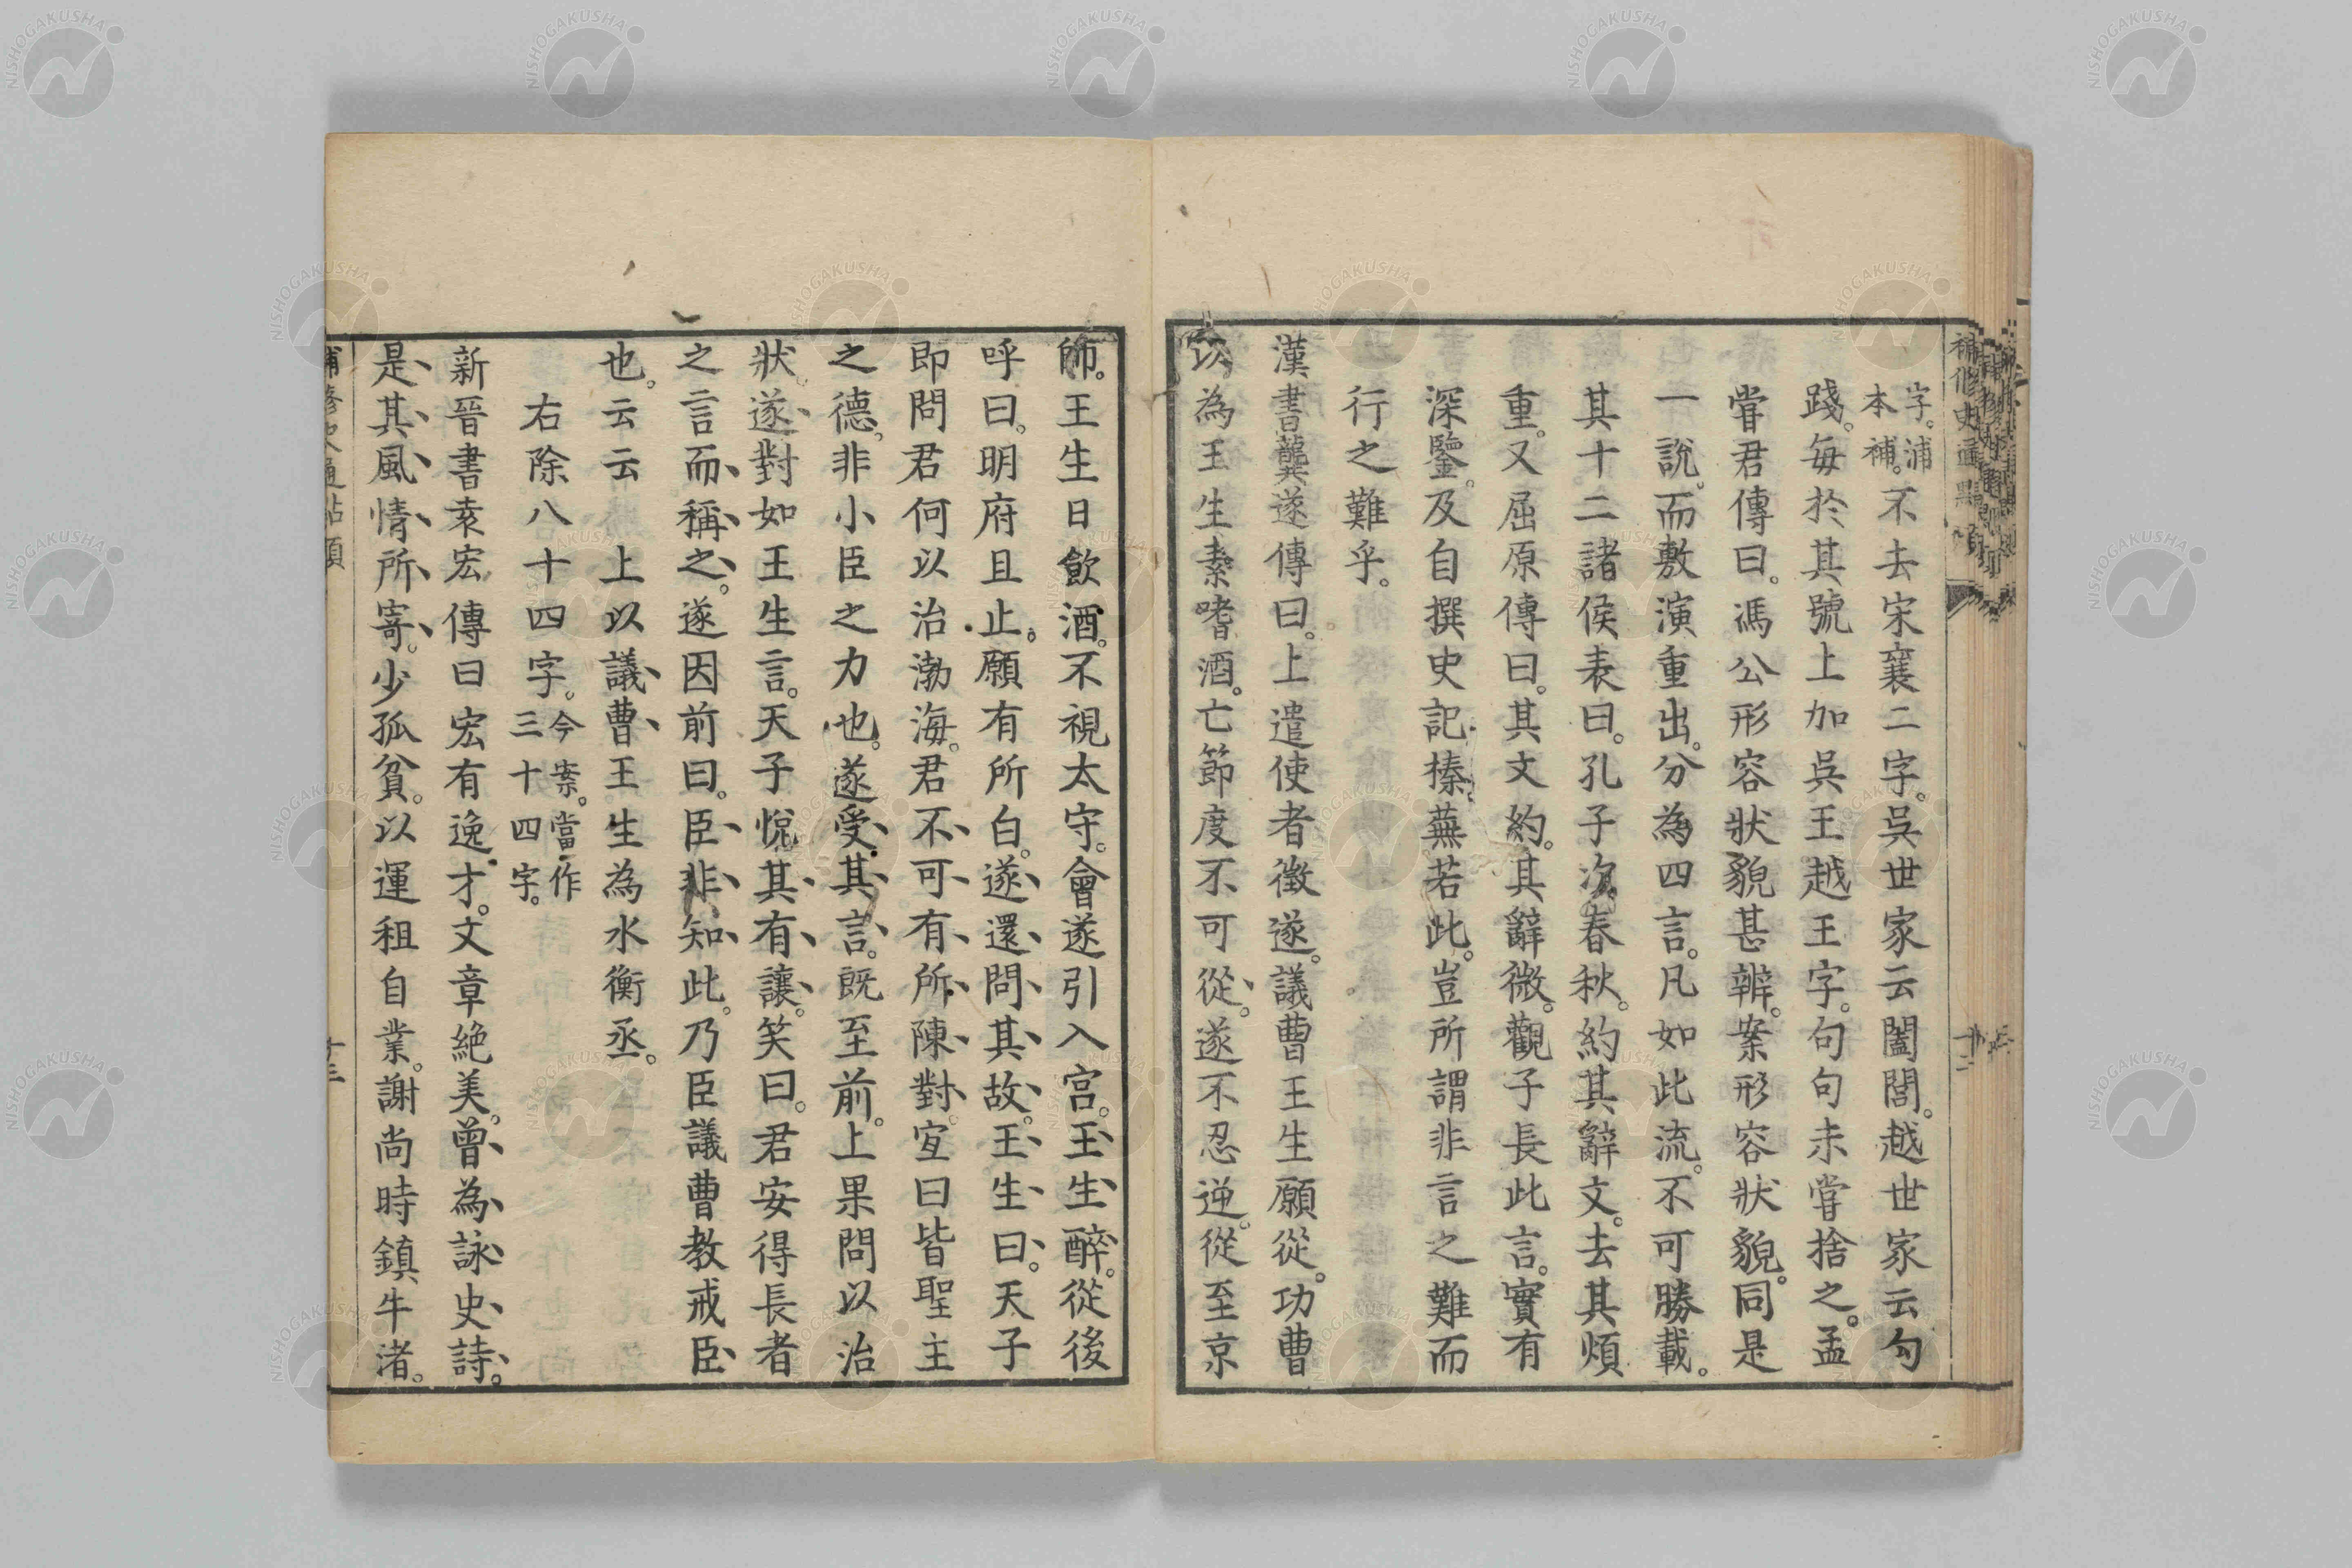 字。浦
本補。不去宋襄二字。吳世家云闔閭。越世家云勾
踐。每於其號上加吳王越王字。句句未嘗捨之。孟
嘗君傳曰。馮公形容狀貌甚辨。案形容狀貌。同是
一說。而敷演重出。分為四言。凡如此流。不可勝載。
其十二諸侯表曰。孔子次春秋。約其辭文。去其煩
重。又屈原傳曰。其文約。其辭微。觀子長此言。實有
深鑒。及自撰史記。榛蕪若此。豈所謂非言之難而
行之難乎。
漢書龔遂傳曰。上遣使者徵遂。議曹王生願從。功曹
以為王生素嗜酒。亡節度不可從。遂不忍逆。從至京
師。王生日飲酒。不視太守。會遂引入宮。王生醉。從後
呼曰。明府且止。願有所白。遂還問其故。王生曰。天子
即問君何以治渤海。君不可有所陳對。宜曰皆聖主
之德。非小臣之力也。遂受其言。既至前。上果問以治
狀。遂對如王生言。天子悅其有讓。笑曰。君安得長者
之言而稱之。遂因前曰。臣非知此。乃臣議曹教戒臣
也。云云 上以議曹王生為水衡丞。
右除八十四字。今案。當作
三十四字。
新晉書袁宏傳曰宏有逸才。文章絕美。曾為詠史詩。
是其風情所寄。少孤貧。以運租自業。謝尚時鎮牛渚。